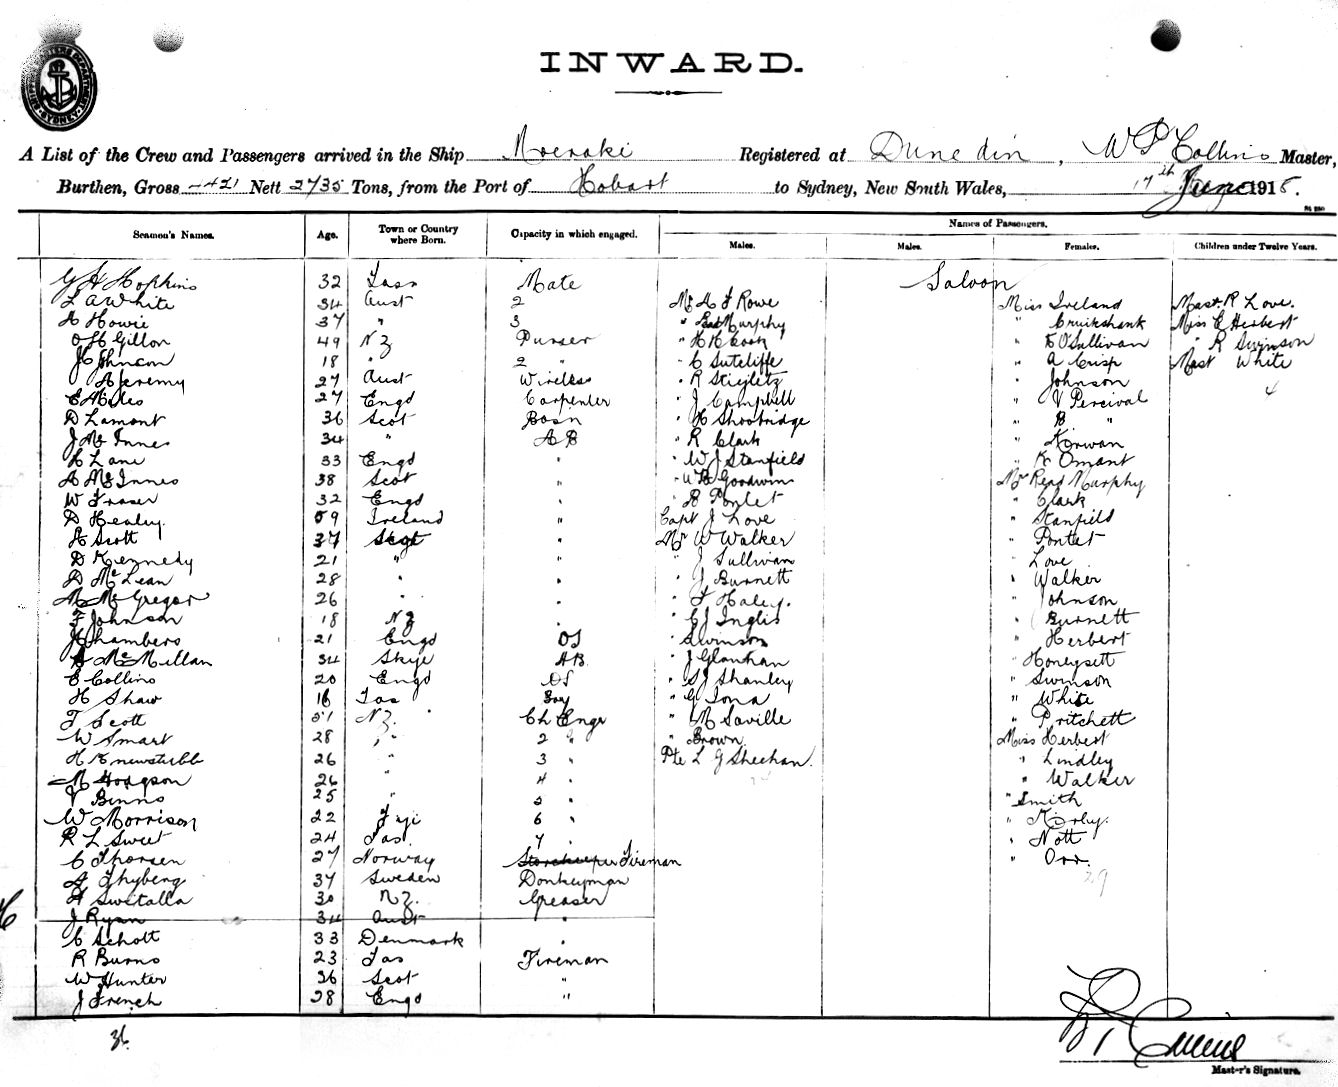 INWARD.
A List of the Crew and Passengers arrived in the Ship Moeraki Registered at Dunedin, W P Collins Master,
Burthen, Gross 4421 Nett 2735 Tons, from the Port of Hobart to Sydney, New South Wales, 17th June 1918.
Seamen's Names. Age. Town or Country where Born. Capacity in which engaged. Names of Passengers.
Males. Males. Females. Children under Twelve Years.
Saloon
G H Hopkins 32 Tass Mate
L A White 34 Aust 2 Mr A J Rowe Miss Ireland Mast. R Love.
A Howie 37 " 3 " Murphy " Cruikshank Miss E Herbert
O H Gillon 49 NZ Purser " H H Cook " E O'Sullivan " R Swinson
J C Johnson 18 " 2 " " C Sutcliffe " A Crisp Mast White
A Jeremy 27 Aust Wireless " R Stieglitz " Johnson 4
E Miles 27 Engd Carpenter " J Campbell " V Percival
D Lamont 36 Scot Bosn " H Shoobridge " B "
J McInnes 34 " A B " R Clark " Kirwan
A Lane 33 Engd " " W J Stanfield " K Omant
A McInnes 38 Scot " " Goodwin Mrs Read Murphy
W Fraser 32 Engd " " Pontet " Clark
D Healey. 59 Ireland " Capt J Love " Stanfield
A Scott 37 Scot " Mr W Walker " Pontet
D Kennedy 21 " " " J Sullivan " Love
D McLean 28 " " " J Burnett " Walker
M McGregor 26 " " " T Haley. " Johnson
F Johnson 18 NZ " " C J Inglis " Burnett
J Chambers 21 Engd OS " Swinson " Herbert
A McMillan 34 Skye AB " J Glanhan " Honeysett
E Collins 20 Engd OS " S J Shanley " Swinson
H Shaw 16 Tas Boy " G Iona " White
T Scott 51 NZ. Ch Engr " M Saville " Pritchett
W Smart 28 " 2 " " Brown Miss Herbert
H Knewstubb 26 " 3 " Pte L G Sheehan. " Lindley
M Hodgson 26 " 4 " 24 " Walker
V Binns 25 " 5 " " Smith
W Morrison 22 Fiji 6 " " Kirby.
R L Sweet 24 Tas. 7 " " Nott
C Thorsen 27 Norway Storekeeper Fireman " Orr.
A Thyberg 37 Sweden Donkeyman 29
A Switalla 30 NZ. Greaser
J Ryan 34 Aust "
C Schott 33 Denmark "
R Burns 23 Tas Fireman
W Hunter 36 Scot "
J French 28 Engd "
36
Master's Signature.